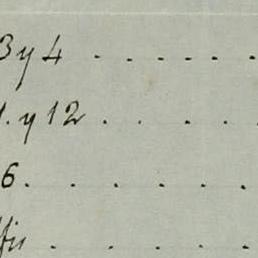 3 y 4 . . . . . .
1. y 12 . . . . .
6. . . . . .